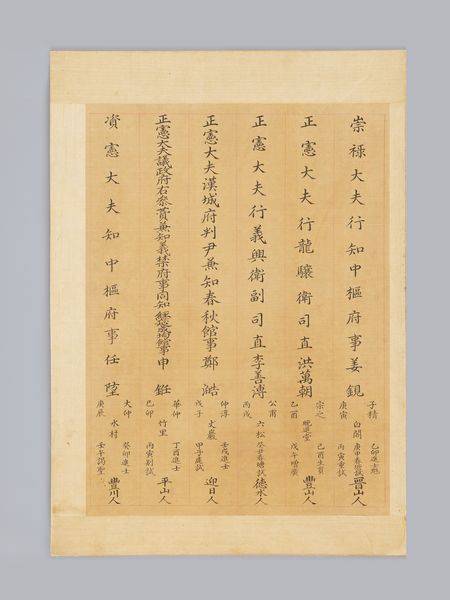 崇祿大夫行知中樞府事姜鋧
子精
庚寅
白閣
乙卯進士魁
庚申春塘試
丙寅重試
晋山人
正憲大夫行龍驤衛司直洪萬朝
宗之
乙酉
晩退堂
己酉生員
戊午增廣
豊山人
正憲大夫行義興衛副司直李善溥
公甫
丙戌
六松
癸丑春塘試
德水人
正憲大夫漢城府判尹兼知春秋館事鄭澔
仲淳
戊子
丈巖
壬戌進士
甲子庭試
迎日人
正憲大夫議政府右參贊兼知義禁府事同知經筵成均館事申銋
華仲
己卯
竹里
丁酉進士
丙寅別試
平山人
資憲大夫知中樞府事任埅
大仲
庚辰
水村
癸卯進士
壬午謁聖
豊川人